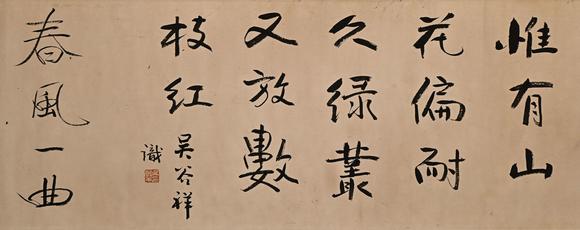 惟有山
花偏耐
久緑叢
又放數
枝紅
吳谷祥
識
春風一曲